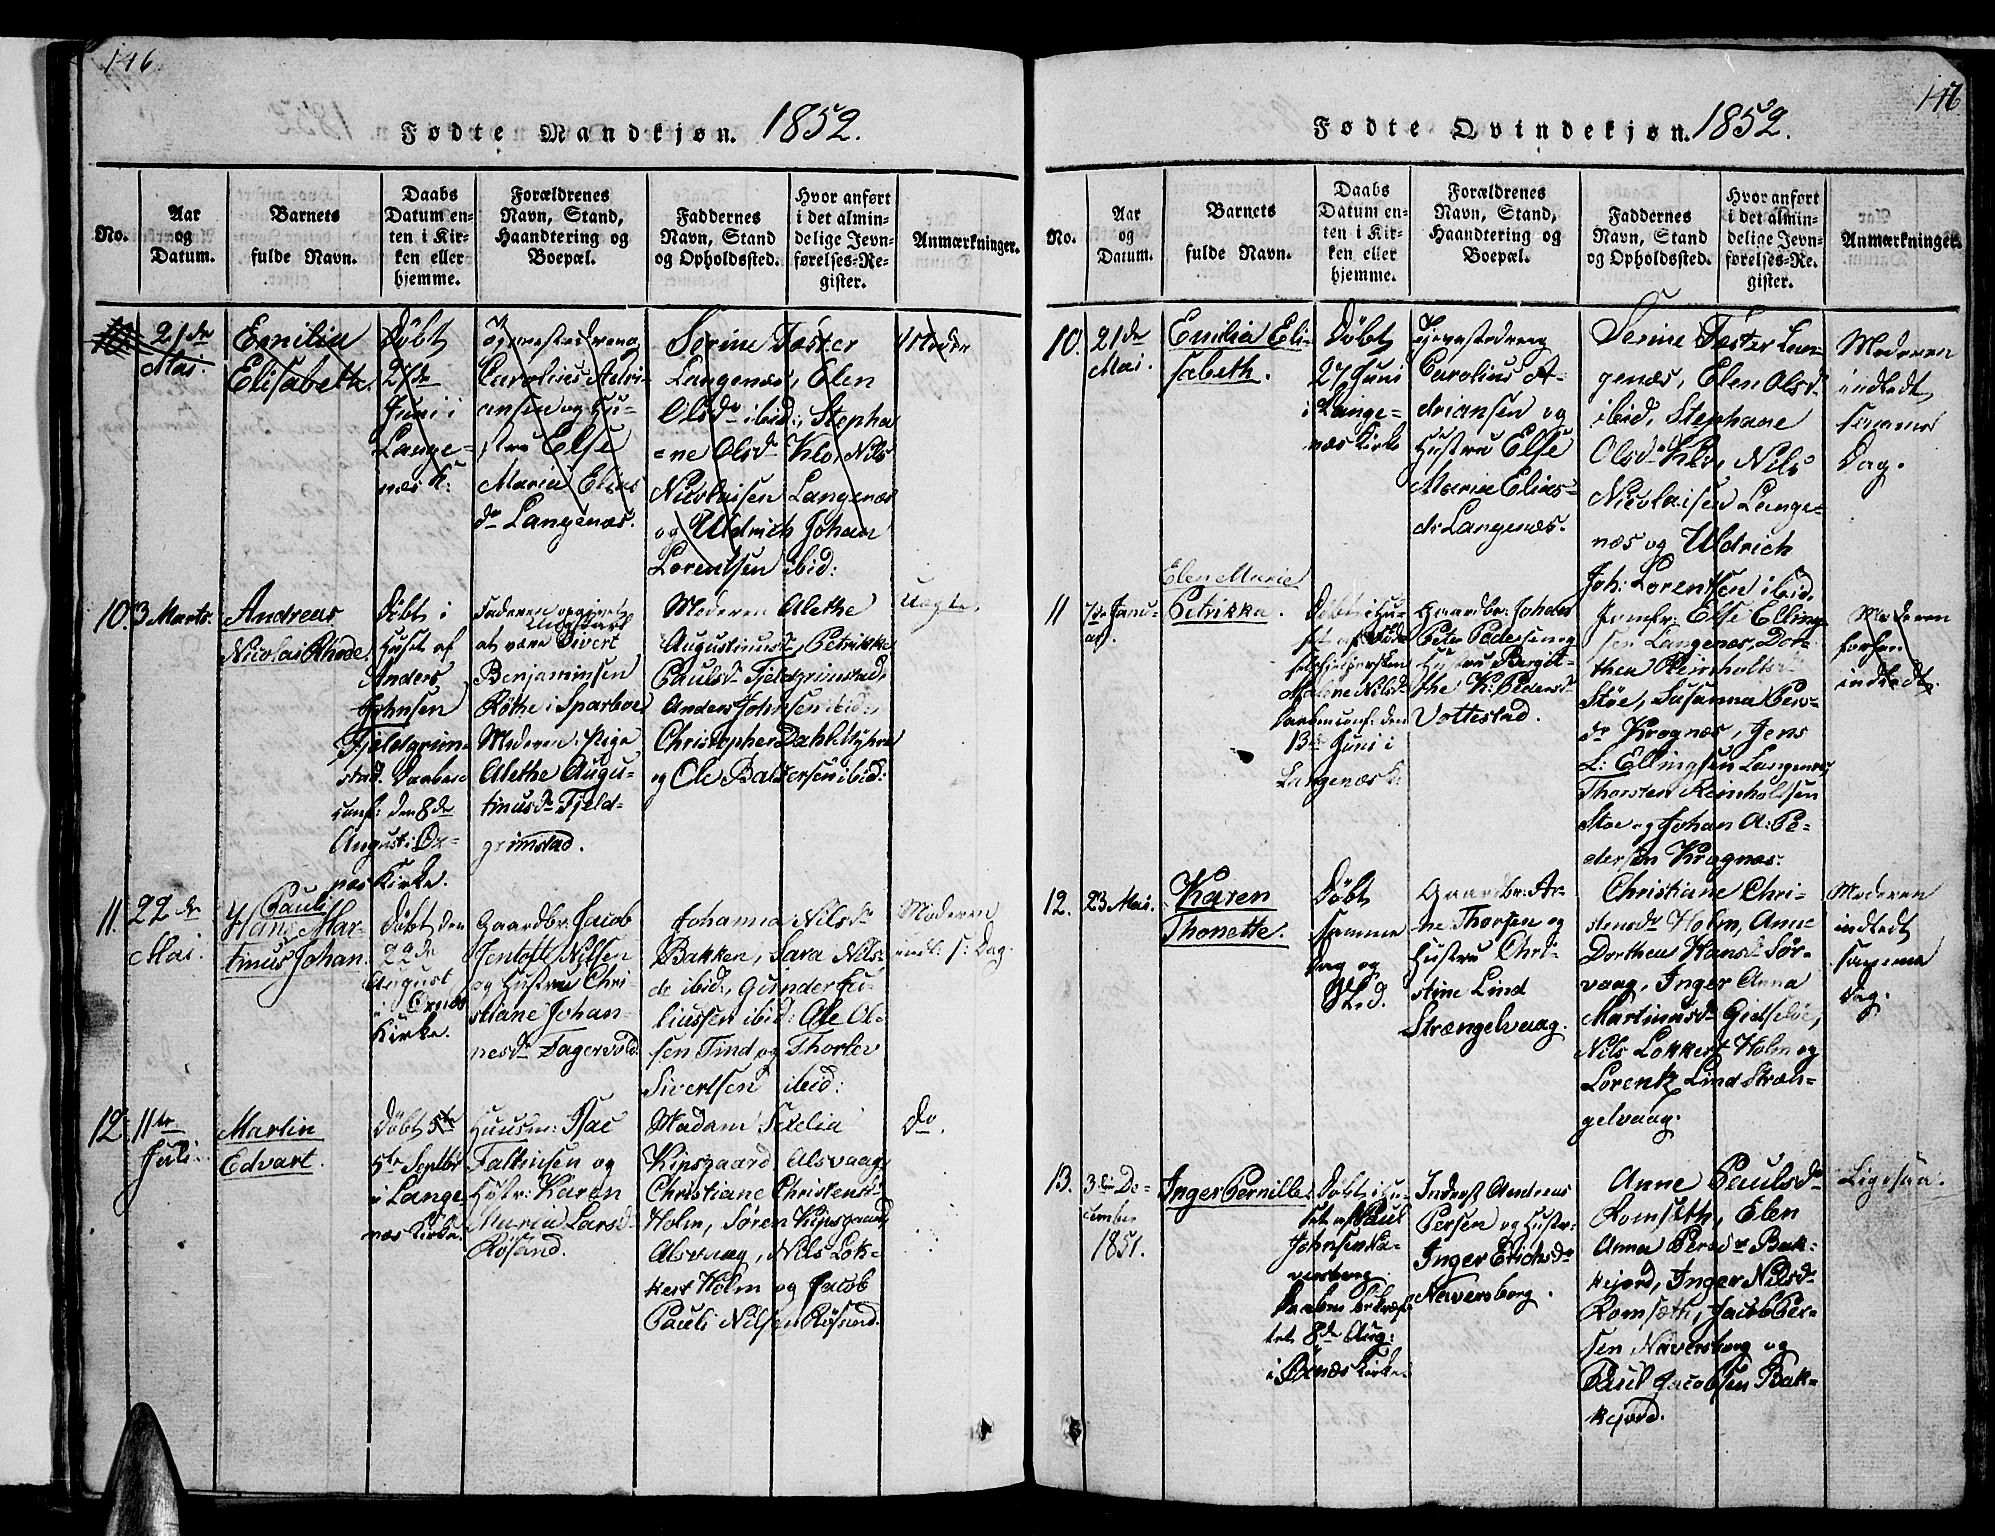 146
Fødte Mandkjøn. 1852.
No.
Aar
og
Datum.
Barnets
fulde Navn.
Daabs
Datum en-
ten i Kir-
ken eller
hjemme.
Forældrenes
Navn, Stand,
Haandtering og
Boepæl.
Faddernes
Navn, Stand
og Opholdssted.
Hvor anført
i det almin-
delige Jevn-
førelses-Re-
gister.
Anmærkninger.
10.
21de
Mai.
Emilia
Elisabeth
Døbt
27de
Juni i
Lange-
næs K:
Carolius Adri-
ansen og Hu-
stru Else
Maria Elias
dr Langenæs.
Sørine Tøsker
Langenæs, Elen
Olsdr ibid:, Stepha
=ne Olsdr Klo, Nils
Nicolaisen Langenæs
og Uldrich Johan
Lorentsen ibid:
10.
3 Marts.
Andreas
Nicolai Rhode.
Døbt i
Huset af
Anders
Johnsen
Fjeldgrim-
stad. Daaben
conf: den 8de
August i Øx-
næs Kirke.
Faderen opgivet
at være Sivert
Benjaminsen
Røthe i Sparboe
Moderen: Pige
Alethe Augu-
tinusdr Fjeld-
grimstad.
Moderen Alethe
Augustinusdr, Petrikke
Paulsdr Fjeldgrimstad,
Anders Johnsen ibid:,
Christopher Dahl Myhre
og Ole Baltsersen ibid:
Uægte.
11.
22de
Mai.
Pauli
Hans Mar-
tinus Johan.
Døbt den
22de
August
i Øxnæs
Kirke.
Gaardbr: Jacob
Jentoft Nilsen
og Hustru Chri-
stiane Johan-
nesdr Fagervold.
Johanna Nilsdr
Bakken, Sara Nils-
dr ibid:, Gunder Ju-
liussen ibid: Ole Ol-
sen Tind og Thorlev
Sivertsen ibid:
Moderen
indl: s: Dag.
12
11te
Juli.
Martin
Edvart.
Døbt
5te Septbr
i Lange
næs Kirke.
Huusm: Isac
Faltinsen og
Hustr: Karen
Maria Larsdr
Røsand.
Madam Sexelia
Kipsgaard Alsvaag,
Christiane Christensdr
Holm, Søren Kipsgaard
Alsvaag, Nils Lok-
kert Holm og Jacob
Pauli Nilsen Røsand.
Do.
146
Fødte Qvindekjøn. 1852.
No.
Aar
og
Datum.
Barnets
fulde Navn.
Daabs
Datum en-
ten i Kir-
ken eller
hjemme.
Forældrenes
Navn, Stand,
Haandtering og
Boepæl.
Faddernes
Navn, Stand
og Opholdssted.
Hvor anført
i det almin-
delige Jevn-
førelses-Re-
gister.
Anmærkninger.
10.
21de
Mai.
Emilia Eli-
sabeth.
Døbt
27 Juni
i Lange-
næs Kirke
Carolius A-
driansen og
Hustru Else
Maria Elias-
dr Langenæs.
Serine Tøster Lan-
genæs, Elen Olsdr
ibid, Stephane
Olsdr Klo, Nils
Nicolaisen Lange-
næs og Uldrich
Joh: Lorentsen ibid,
Moderen
indledt
samme
Dag.
11
7de Janu-
ar.
Elen Marie
Petrikka.
Døbt i Hu-
set af
Malene Nilsdr
Daaben conf: den
13de Juni i
Langenæs K:
Gaardbr: Johan
Peter Pedersen og
Hustru Bergit-
the K: Pedersdr
Vottestad.
Jomfr: Else Elling-
sen Langenæs, Dor-
thea Reinholtsdr
Støe, Susanna Peds-
dr Kragnæs, Jens
L: Ellingsen Langenæs,
Thorsten Reinholtsen
Støe og Johan A: Pe-
dersen Kragnæs.
Moderen
forhen
indledt.
12.
23 Mai.
Karen
Thonette.
Døbt
samme
Dag og
Sted.
Gaardbr: Ar-
ne Thorsen og
Hustru Chri-
stine Lind
Strængelvaag.
Christiane Chri-
stensdr Holm, Ane
Dorthea Hansdr Sør-
vaag, Inger Anna
Martinusdr Gidsløe,
Nils Lokkert Holm og
Lorentz Lind Stræn-
gelvaag.
Moderen
indledt
samme
Dag.
13.
3die De-
cember
1851.
Inger Pernille.
Døbt i Hu-
set af Paul
Johnsen Na-
versborg.
Daaben bekræf-
tet 8de Aug:
i Øxnæs Kirke.
Inderst Andreas
Persen og Hustr:
Inger Erichsdr
Naversborg.
Anne Paulsdr
Romsæth, Elen
Anna Persdr Bak-
kejord, Inger Nilsdr
Romsæth, Jacob Per-
sen Naversborg og
Paul Jacobsen Bak-
kejord.
Ligesaa.